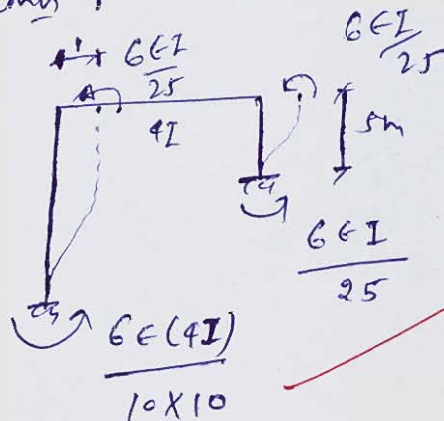 1
6EI
25
6EI
25
4I
5m
6EI
25
6E(4I)
10X10